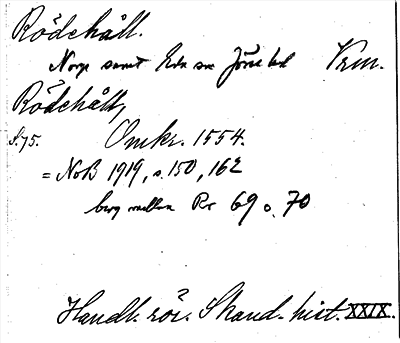 Rödehåll.
Norge samt Eda sn Jösse hd Vrm.
Rödehållt,
s. 75. Omkr. 1554.
= NoB 1919, s. 150, 162
berg mellan Rr 69 o. 70
Handl. rör. Skand. hist. XXIX.